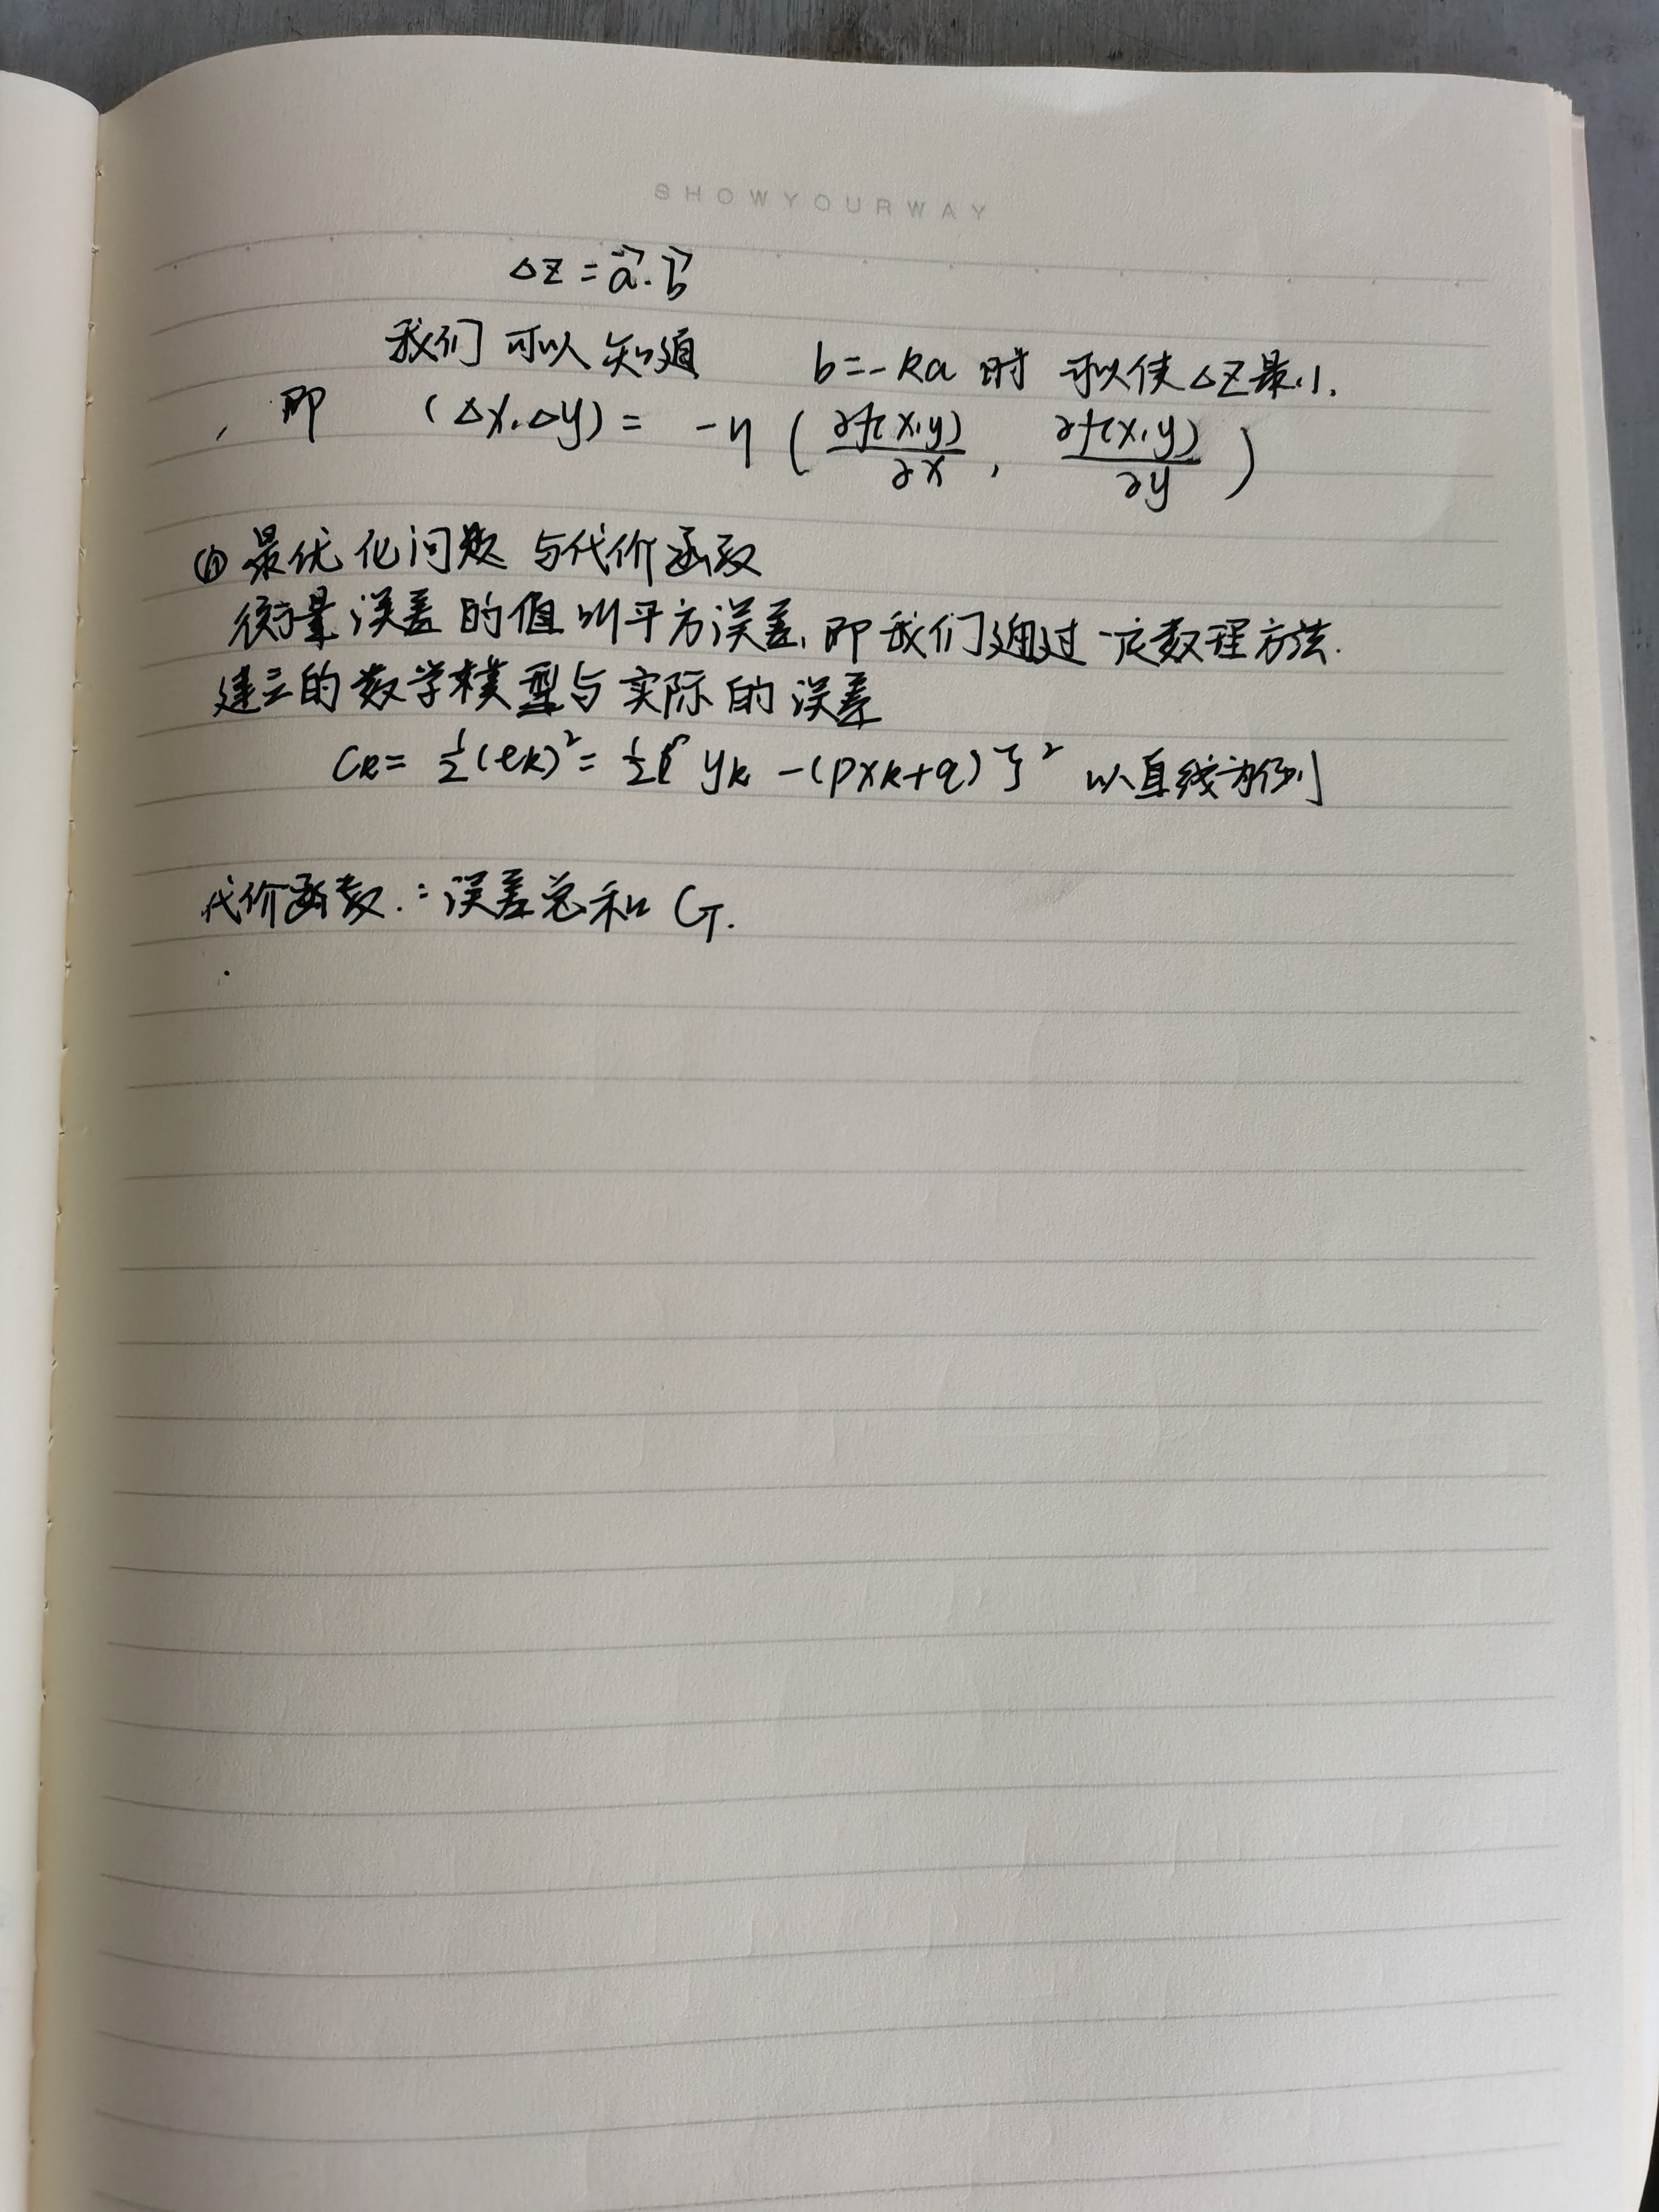 SHOWYOURWAY
Δz = a⃗·b⃗
我们可以知道 b=-ka 时 可以使Δz最小.
, 即 (Δx,Δy) = -η ( ∂f(x,y)/∂x , ∂f(x,y)/∂y )
最优化问题与代价函数
衡量误差的值叫平方误差,即我们通过一定数理方法.
建立的数学模型与实际的误差
Ck= 1/2(ek)²= 1/2{ yk -(pxk+q) }² 以直线为例
代价函数.:误差总和 CT.